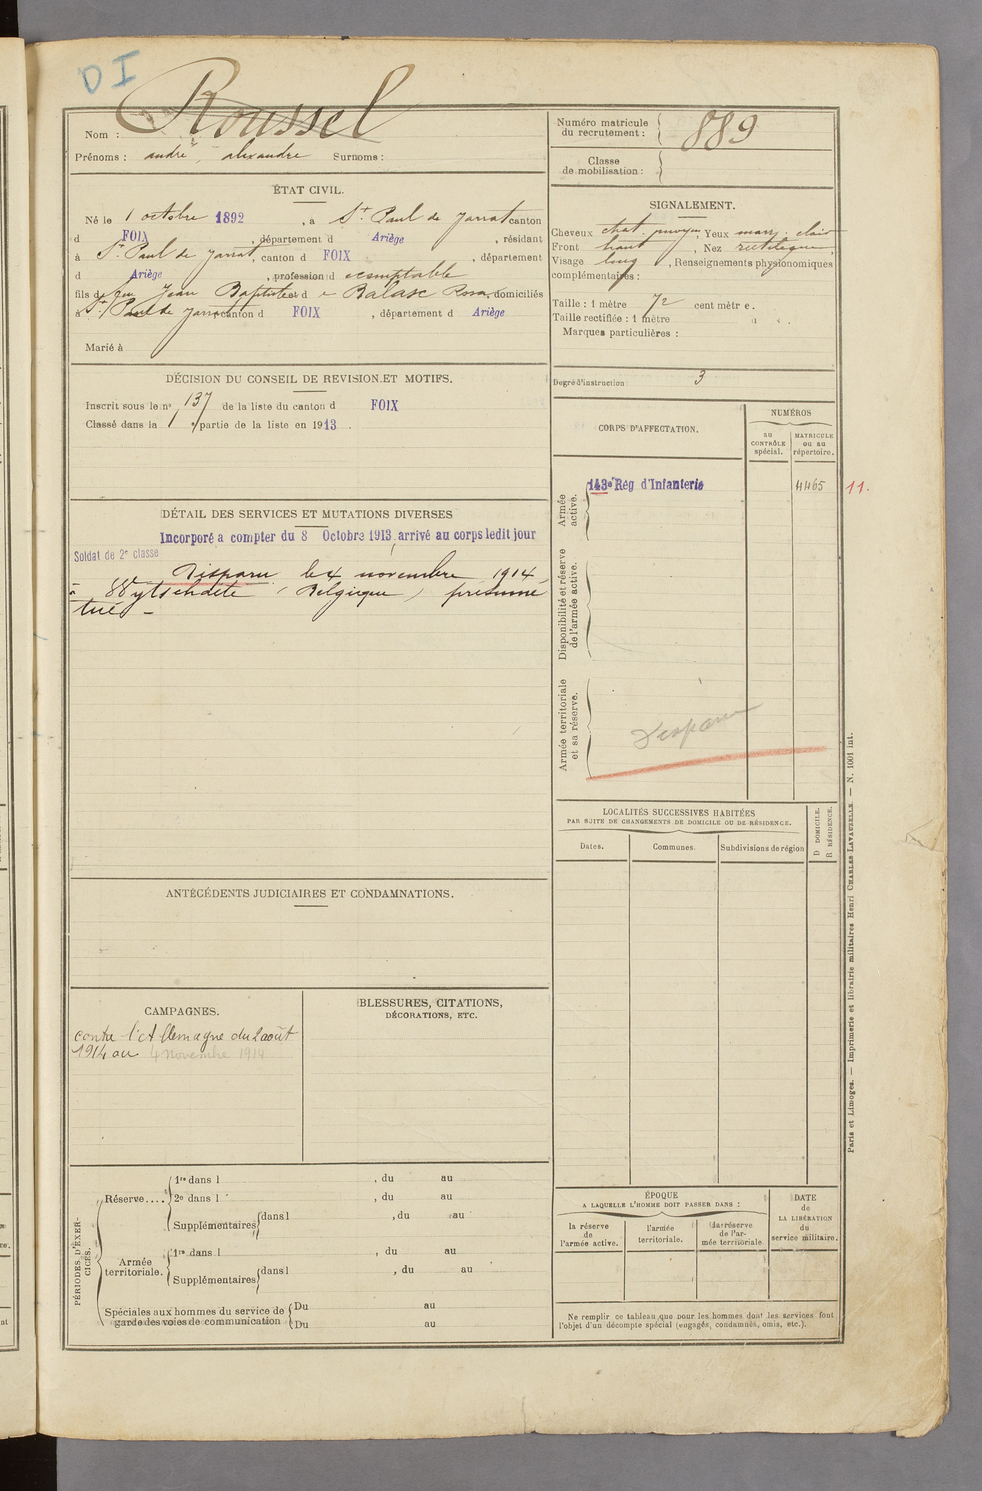 DI
Nom : Roussel
Prénoms : andré, alexandre Surnoms :
ÉTAT CIVIL.
Né le 1 octobre 1892, à St Paul de Jarrat canton
d FOIX, département d Ariège, résidant
à St Paul de Jarrat, canton d FOIX, département
d Ariège, profession d comptable
fils de feu Jean Baptiste et d e Balasc Rosa, domiciliés
à St Paul de Jarrat canton d FOIX, département d Ariège
Marié à
DÉCISION DU CONSEIL DE REVISION ET MOTIFS.
Inscrit sous le no 137 de la liste du canton d FOIX
Classé dans la 1 partie de la liste en 1913.
DÉTAIL DES SERVICES ET MUTATIONS DIVERSES
Incorporé à compter du 8 Octobre 1913, arrivé au corps ledit jour
Soldat de 2e classe
Disparu le 4 novembre 1914,
à Wytschdete (Belgique) présumé
tué -
ANTÉCÉDENTS JUDICIAIRES ET CONDAMNATIONS.
CAMPAGNES.
contre l'Allemagne du 2 août
1914 au 4 Novembre 1914
BLESSURES, CITATIONS,
DÉCORATIONS, ETC.
PÉRIODES D'EXER-
CICES.
Réserve....
1re dans l , du au
2e dans l , du au
Supplémentaires dans l , du au
Armée
territoriale.
1re dans l , du au
Supplémentaires dans l , du au
Spéciales aux hommes du service de
garde des voies de communication
Du au
Du au
Numéro matricule
du recrutement : 889
Classe
de mobilisation :
SIGNALEMENT.
Cheveux chat. moyen, Yeux marr. clair
Front haut, Nez rectiligne
Visage long, Renseignements physionomiques
complémentaires :
Taille : 1 mètre 72 centimètre.
Taille rectifiée : 1 mètre
Marques particulières :
Degré d'instruction : 3
CORPS D'AFFECTATION.
NUMÉROS
AU
CONTRÔLE
spécial.
MATRICULE
OU AU
répertoire.
Armée
active.
143e Rég d'Infanterie 4465 11.
Disponibilité et réserve
de l'armée active.
Armée territoriale
et sa réserve.
Disparu
LOCALITÉS SUCCESSIVES HABITÉES
PAR SUITE DE CHANGEMENTS DE DOMICILE OU DE RÉSIDENCE.
Dates. Communes. Subdivisions de région
D DOMICILE.
R RÉSIDENCE.
ÉPOQUE
A LAQUELLE L'HOMME DOIT PASSER DANS :
la réserve
de
l'armée active.
l'armée
territoriale.
la réserve
de l'ar-
mée territoriale
DATE
de
LA LIBÉRATION
du
service militaire.
Ne remplir ce tableau que pour les hommes dont les services font
l'objet d'un décompte spécial (engagés, condamnés, omis, etc.).
Paris et Limoges. — Imprimerie et librairie militaires Henri CHARLES-LAVAUZELLE. — N. 1001 int.